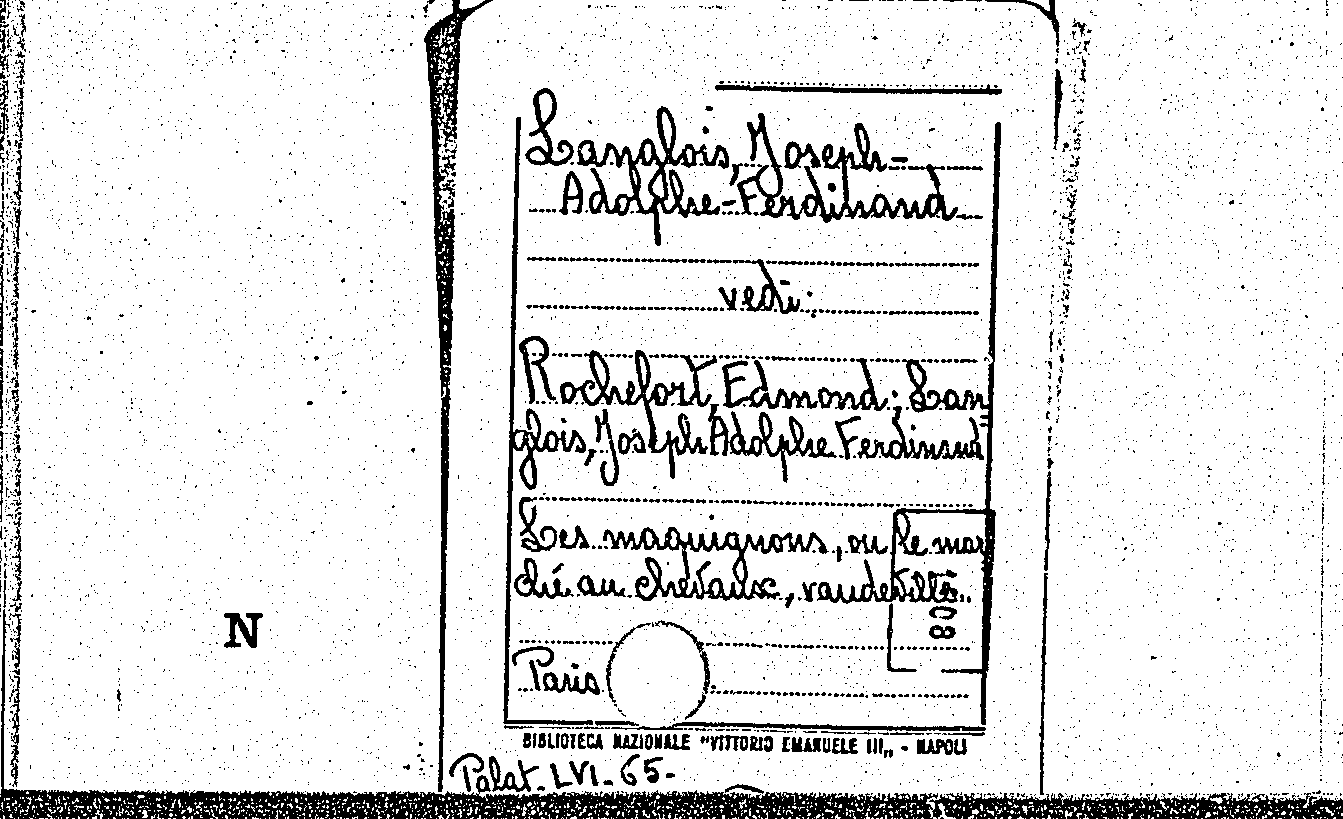 Langlois, Joseph-
Adolphe-Ferdinand
vedi:
Rochefort, Edmond; Lan
glois, Joseph Adolphe Ferdinand
Les maquignons, ou le mar
ché au chevaux, vaudeville.
N
Paris
BIBLIOTECA NAZIONALE "VITTORIO EMANUELE III„ - NAPOLI
Palat. LVI. 65.